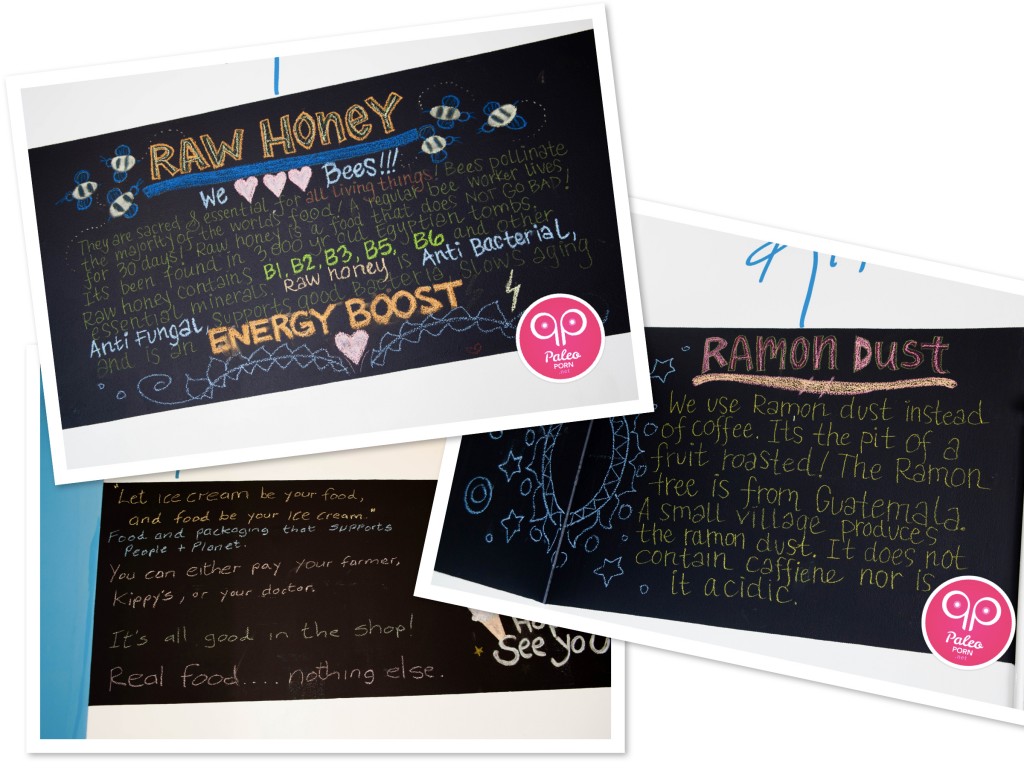 RAW HONEY
We Bees!!!
They are sacred & essential for all living things! Bees pollinate
the majority of the world's food! A regular bee worker lives
for 30 days! Raw honey is a food that does NOT GO BAD!
Its been found in 3,000 yr old Egyptian tombs.
Raw honey contains B1, B2, B3, B5, B6 and other
essential minerals. Raw honey Anti Bacterial,
Anti Fungal, supports good Bacteria, slows aging
and is an ENERGY BOOST
Paleo
PORN
.NET
RAMON DUST
We use Ramon dust instead
of coffee. It's the pit of a
fruit roasted! The Ramon
tree is from Guatemala.
A small village produces
the ramon dust. It does not
contain caffiene nor is
it acidic.
Paleo
PORN
.NET
"Let ice cream be your food,
and food be your ice cream."
Food and packaging that supports
People + Planet.
You can either pay your farmer,
Kippy's, or your doctor.
It's all good in the shop!
Real food.... nothing else.
See you